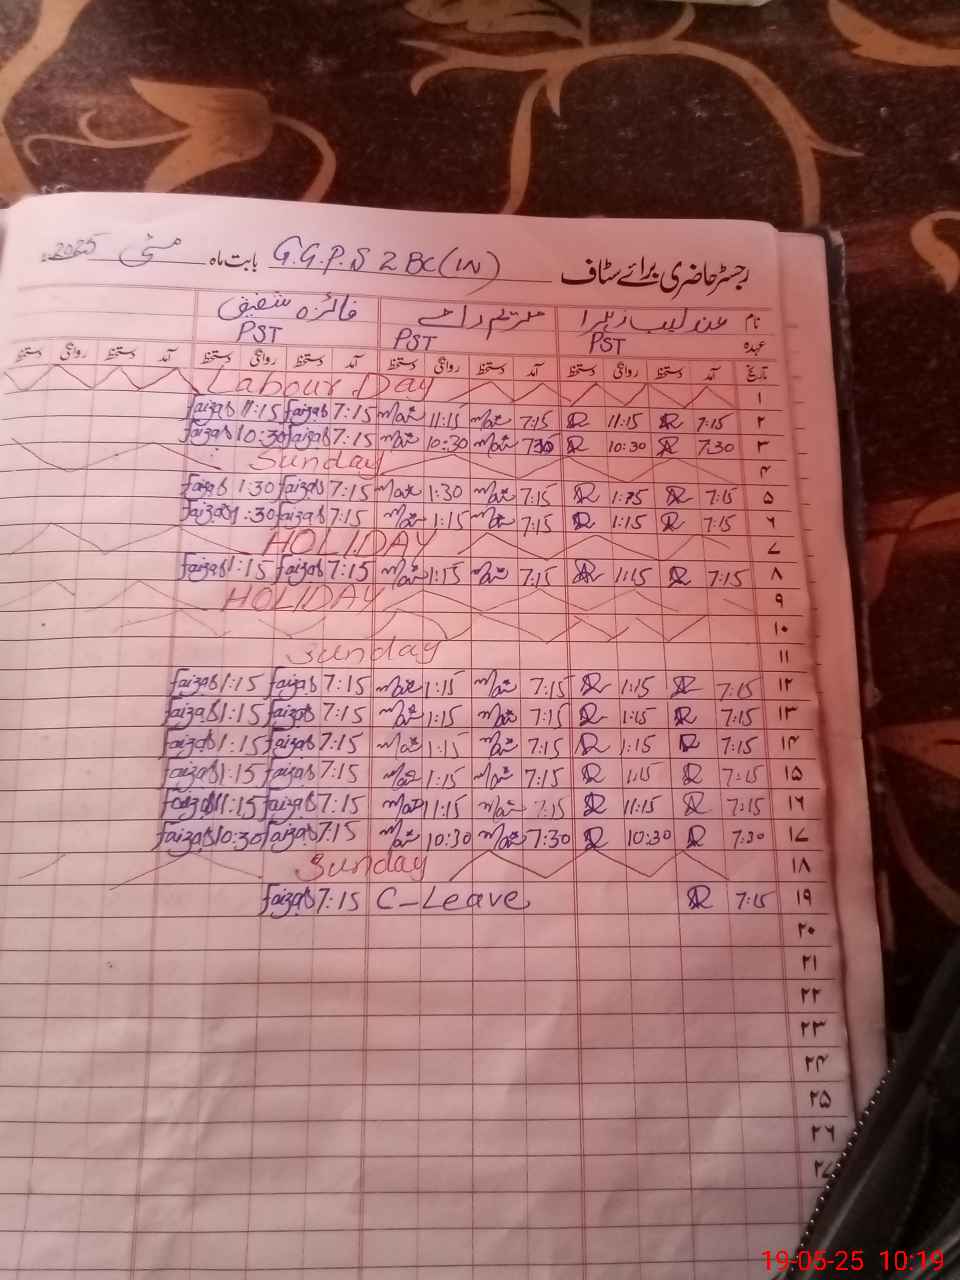 رجسٹر حاضری برائے سٹاف G.G.P.S 2 BC (IN) بابت ماہ مئی 2025ء
نام عندلیب زہرا فائزہ شفیق
عہدہ PST PST PST
تاریخ آمد دستخط روانگی دستخط آمد دستخط روانگی دستخط آمد دستخط روانگی دستخط آمد دستخط روانگی دستخط
۱ Labour Day
۲ 7:15 11:15 7:15 11:15 7:15 faizah 11:15 faizah
۳ 7:30 10:30 7:30 10:30 7:15 faizah 10:30 faizah
۴ Sunday
۵ 7:15 1:15 7:15 1:30 7:15 faizah 1:30 faizah
۶ 7:15 1:15 7:15 1:15 7:15 faizah 1:30 faizah
۷ HOLIDAY
۸ 7:15 1:15 7:15 1:15 7:15 faizah 1:15 faizah
۹ HOLIDAY
۱۰
۱۱ Sunday
۱۲ 7:15 1:15 7:15 1:15 7:15 faizah 1:15 faizah
۱۳ 7:15 1:15 7:15 1:15 7:15 faizah 1:15 faizah
۱۴ 7:15 1:15 7:15 1:15 7:15 faizah 1:15 faizah
۱۵ 7:15 1:15 7:15 1:15 7:15 faizah 1:15 faizah
۱۶ 7:15 11:15 7:15 11:15 7:15 faizah 11:15 faizah
۱۷ 7:30 10:30 7:30 10:30 7:15 faizah 10:30 faizah
۱۸ Sunday
۱۹ 7:15 C-Leave 7:15 faizah
۲۰
۲۱
۲۲
۲۳
۲۴
۲۵
۲۶
۲۷
19-05-25 10:19